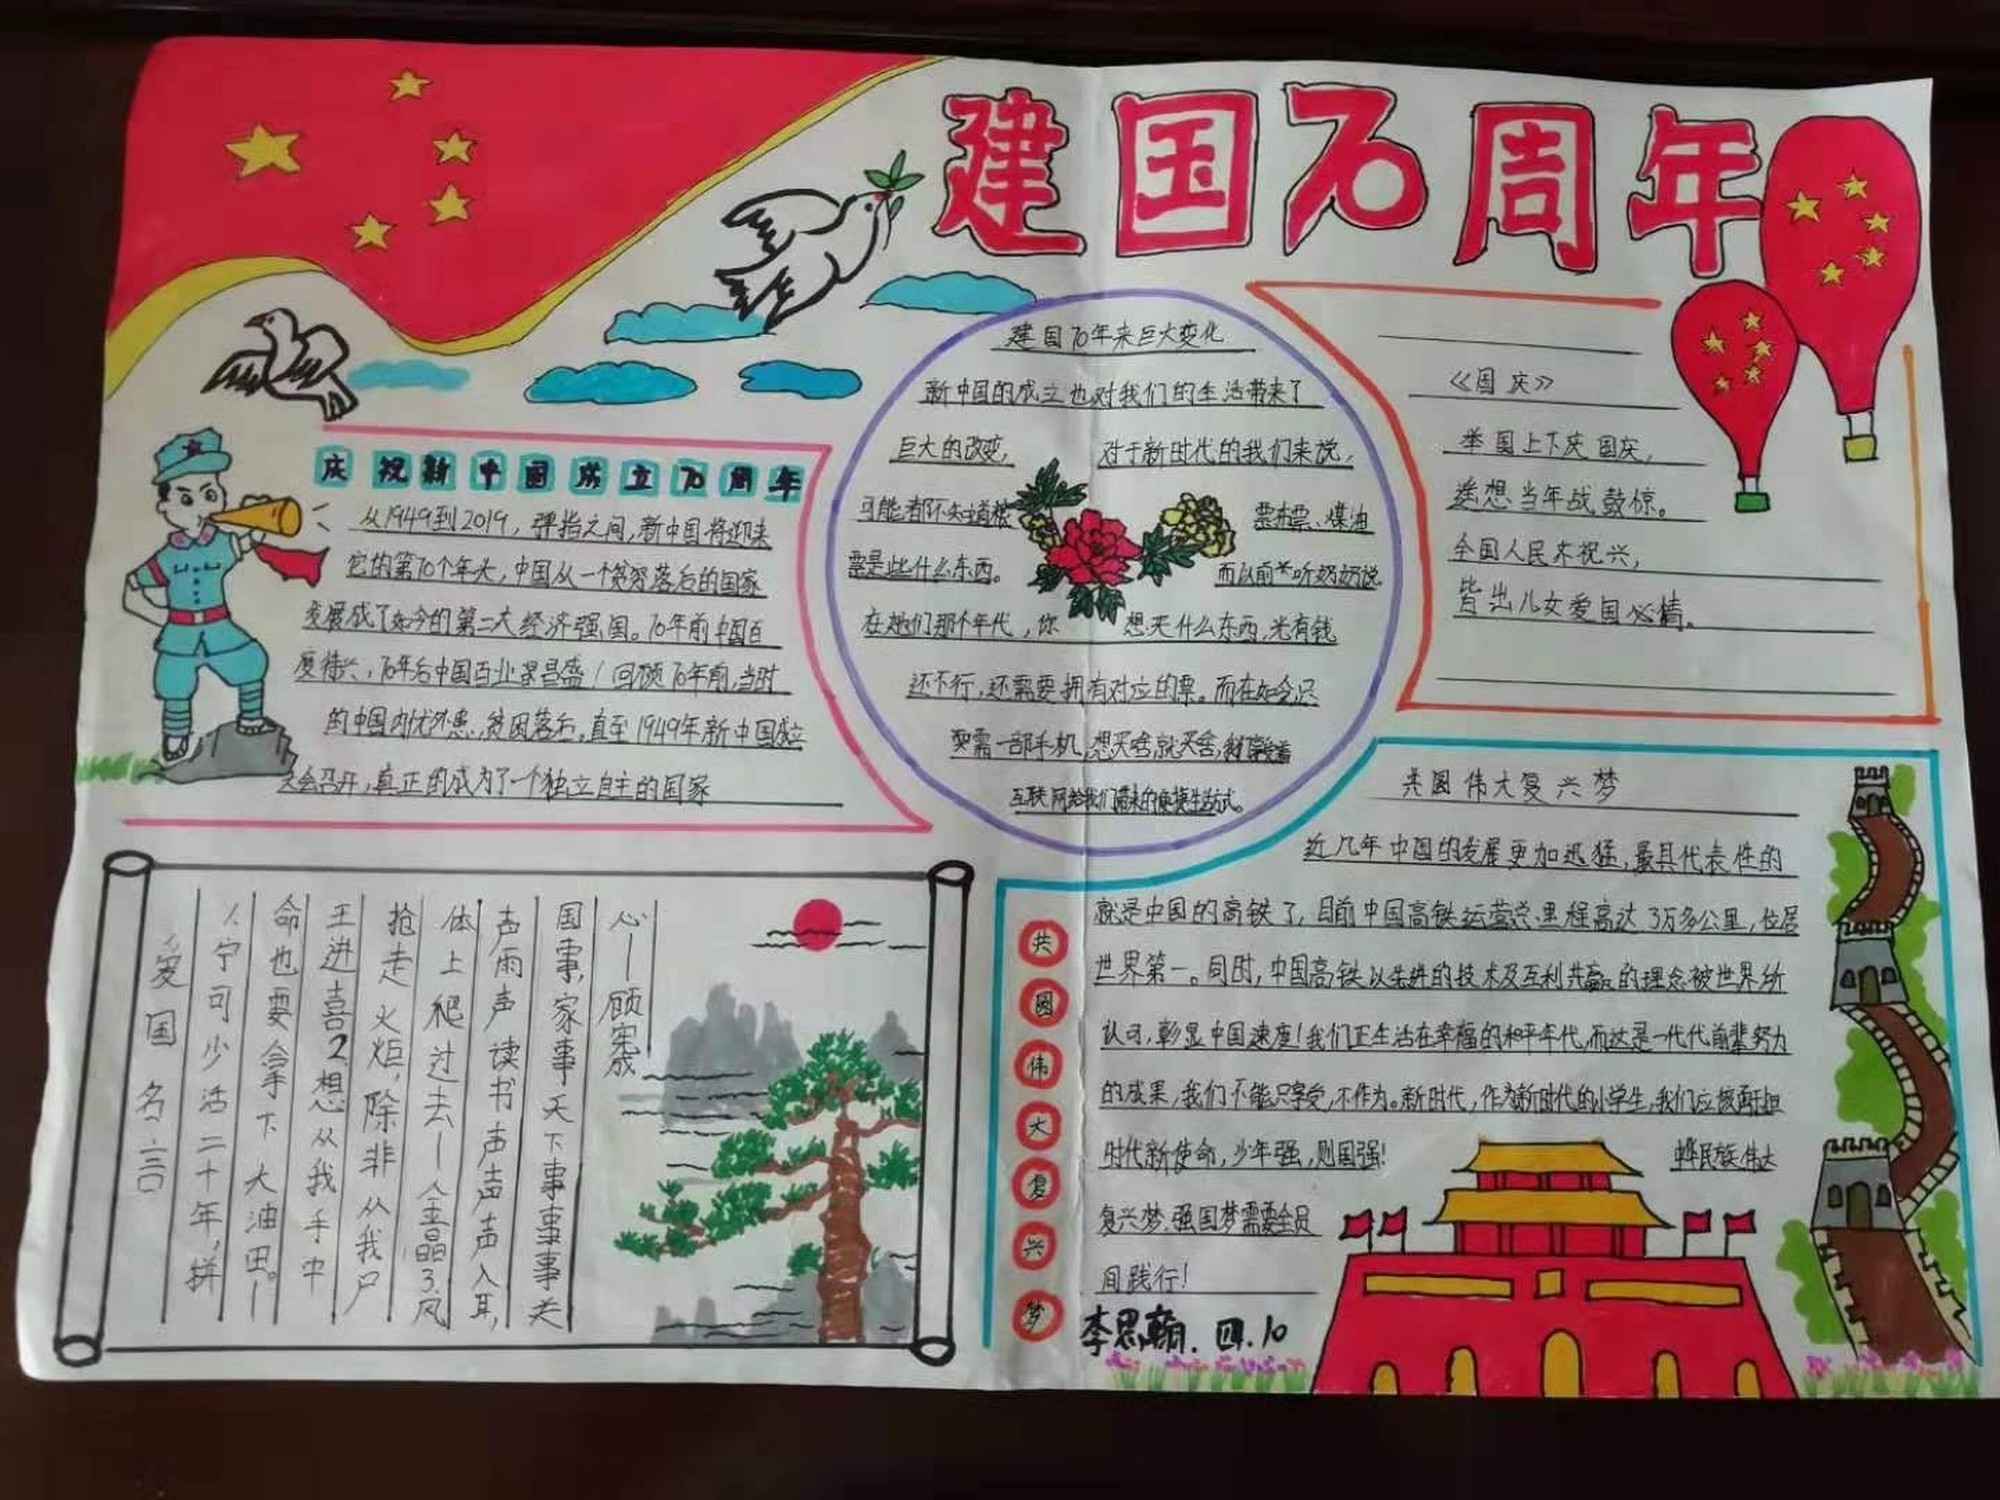 建国70周年
庆祝新中国成立70周年
从1949到2019，弹指之间，新中国将迎来
它的第70个年头，中国从一个贫穷落后的国家
发展成了如今的第二大经济强国。70年前中国百
废待兴，70年后中国百业昌盛！回顾70年前，当时
的中国内忧外患，贫困落后。直至1949年新中国成立
大会召开，真正的成为了一个独立自主的国家
建国70年来巨大变化
新中国的成立也对我们的生活带来了
巨大的改变，对于新时代的我们来说，
可能都不知道粮票布票、煤油
票是些什么东西。而以前听奶奶说
在她们那个年代，你想买什么东西，光有钱
还不行，还需要拥有对应的票。而在如今只
要需一部手机，想买啥就买啥，我们享受着
互联网给我们带来的便捷生活方式。
《国庆》
举国上下庆国庆，
遥想当年战鼓惊。
全国人民来祝兴，
皆出儿女爱国必情。
共圆伟大复兴梦
近几年中国的发展更加迅猛，最具代表性的
就是中国的高铁了，目前中国高铁运营总里程高达3万多公里，位居
世界第一。同时，中国高铁以先进的技术及互利共赢的理念被世界所
认可，彰显中国速度！我们正生活在幸福的和平年代，而这是一代代前辈努力
的成果，我们不能只享受，不作为。新时代，作为新时代的小学生，我们应该勇担
时代新使命，少年强，则国强！中华民族伟大
复兴梦，强国梦需要全员
间践行！
共圆伟大复兴梦
李思翰.四.10
爱国名言
1、宁可少活二十年，拼
命也要拿下大油田。—
王进喜2、想从我手中
抢走火炬，除非从我尸
体上爬过去—金晶3、风
声雨声读书声声声入耳，
国事，家事天下事事事关
心——顾宪成